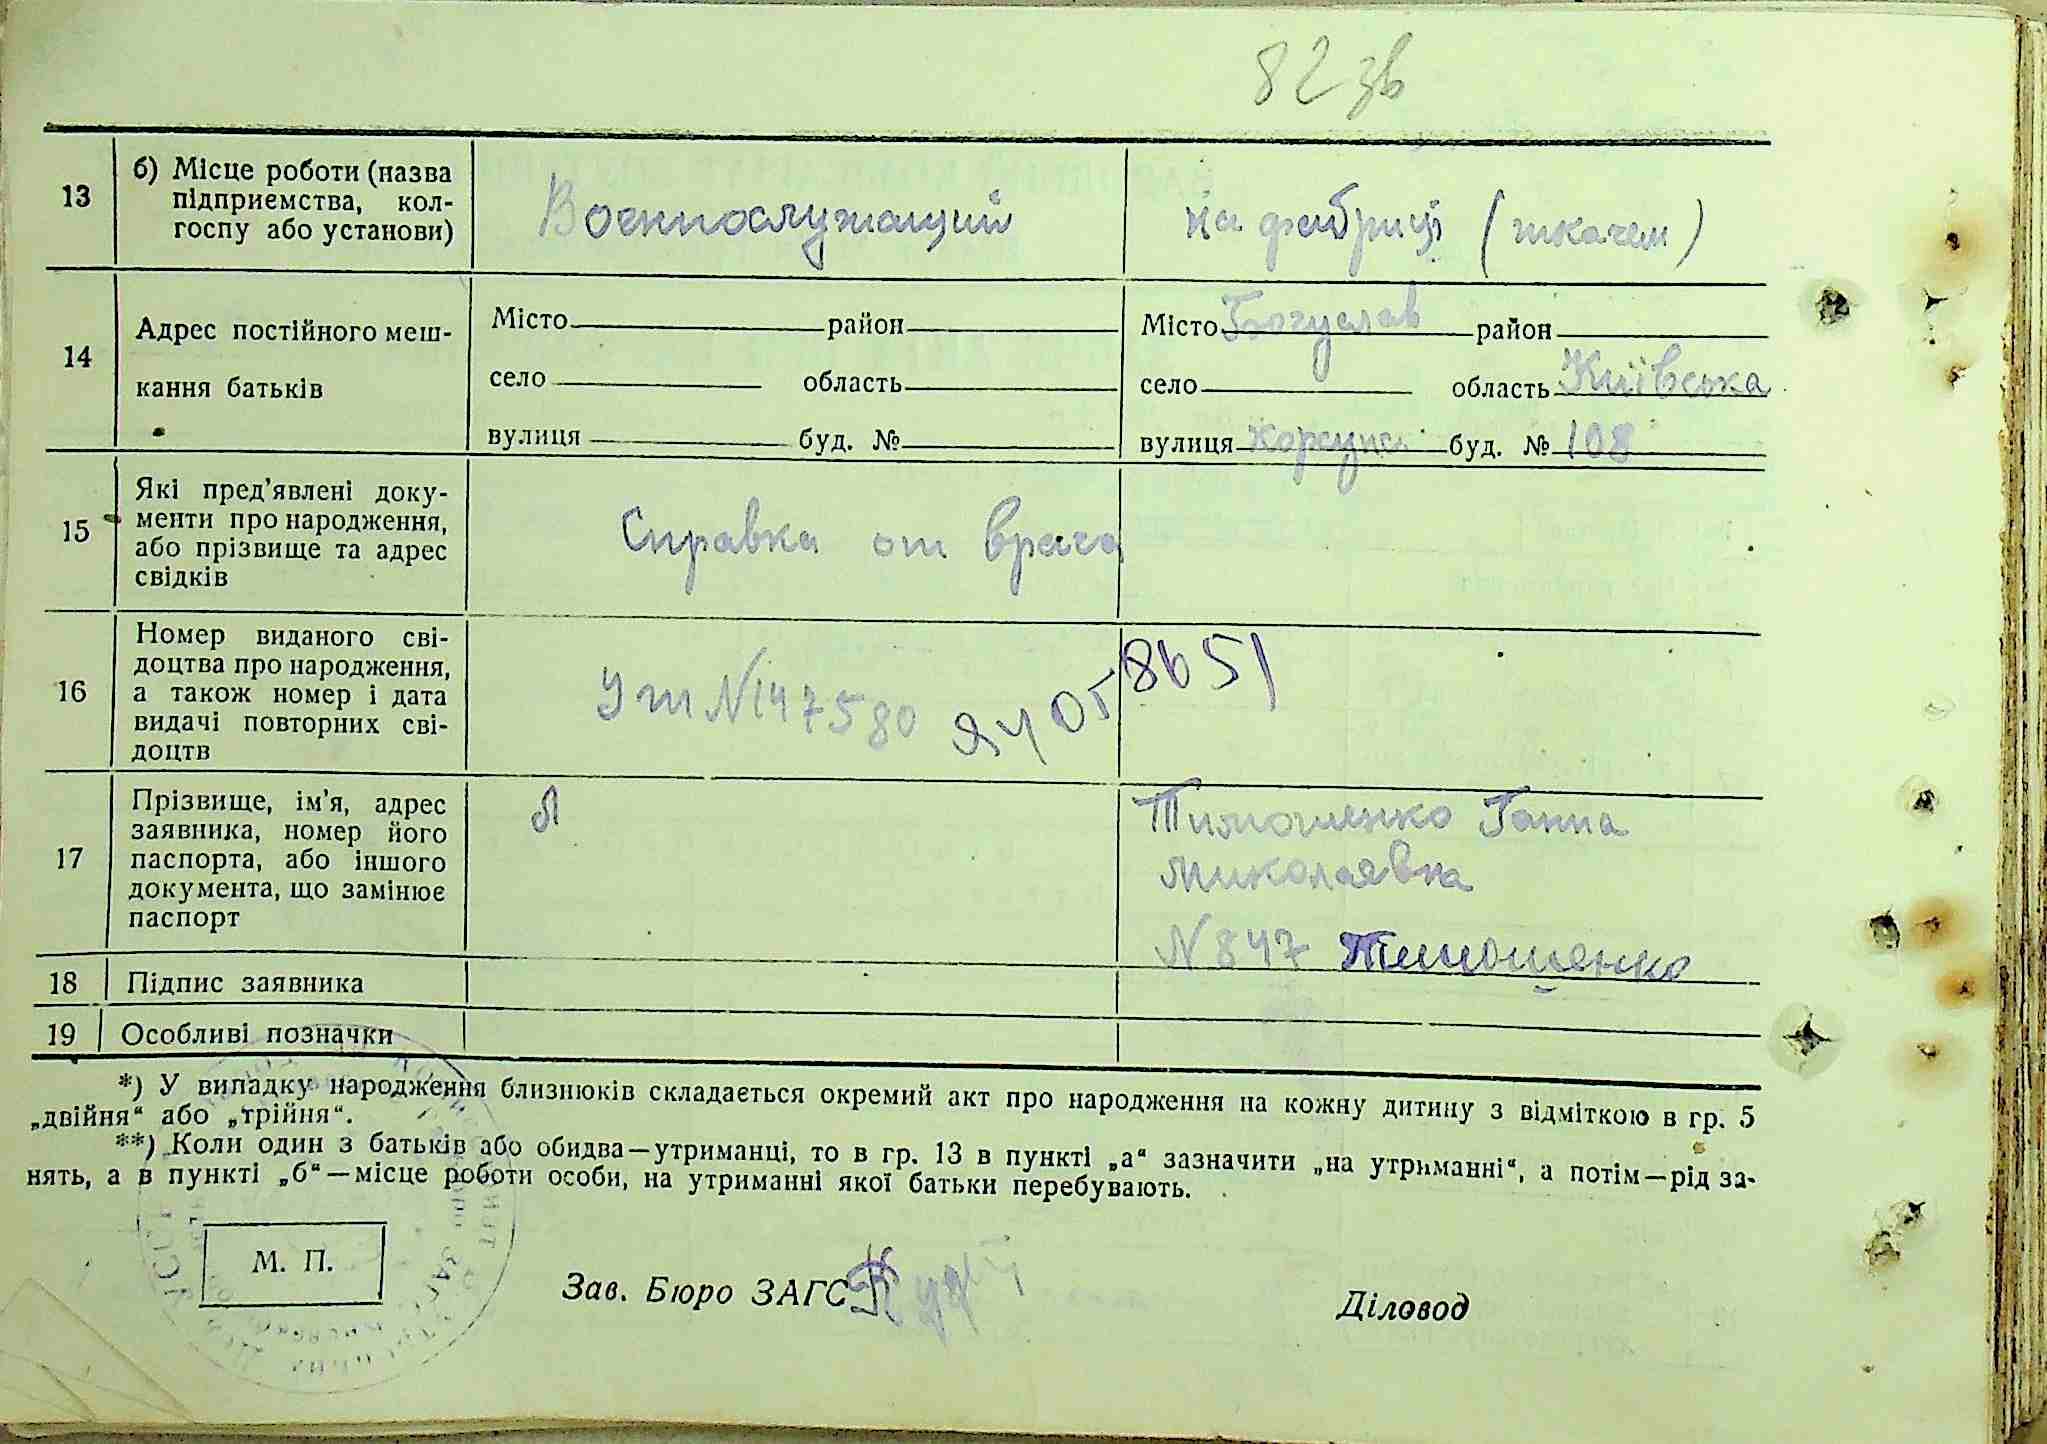 82 зв
13 б) Місце роботи (назва підприємства, кол-госпу або установи) Военнослужащий на фабриці (ткачем)
14 Адрес постійного меш-кання батьків
Місто район Місто Богуслав район
село область село область Київська
вулиця буд. № вулиця Корсунс буд. № 108
15 Які пред'явлені доку-менти про народження, або прізвище та адрес свідків Справка от врача
16 Номер виданого сві-доцтва про народження, а також номер і дата видачі повторних сві-доцтв № 147580 058651
17 Прізвище, ім'я, адрес заявника, номер його паспорта, або іншого документа, що замінює паспорт
Тимошенко Ганна
Миколаявна
N 847 Тимошенко
18 Підпис заявника
19 Особливі позначки
*) У випадку народження близнюків складається окремий акт про народження на кожну дитину з відміткою в гр. 5
„двійня“ або „трійня“.
**) Коли один з батьків або обидва—утриманці, то в гр. 13 в пункті „а“ зазначити „на утриманні“, а потім—рід за-
нять, а в пункті „б“—місце роботи особи, на утриманні якої батьки перебувають.
М. П.
Зав. Бюро ЗАГС
Діловод